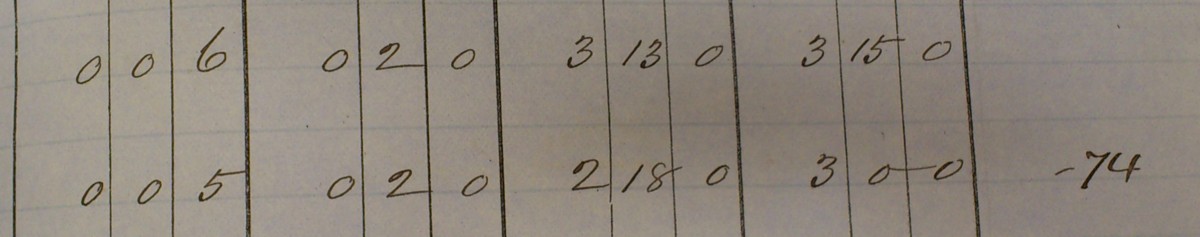 0 0 6 0 2 0 3 13 0 3 15 0
0 0 5 0 2 0 2 18 0 3 0 0 -74